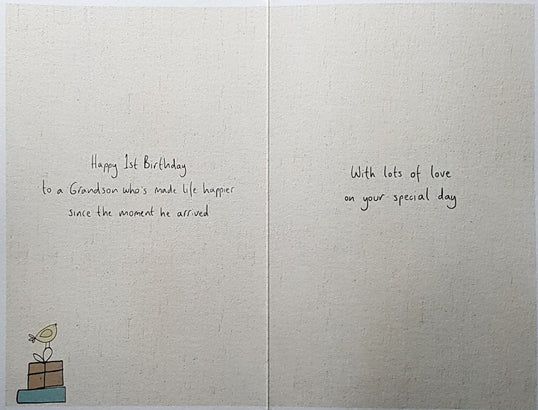 Happy 1st Birthday
to a Grandson who's made life happier
since the moment he arrived
With lots of love
on your special day